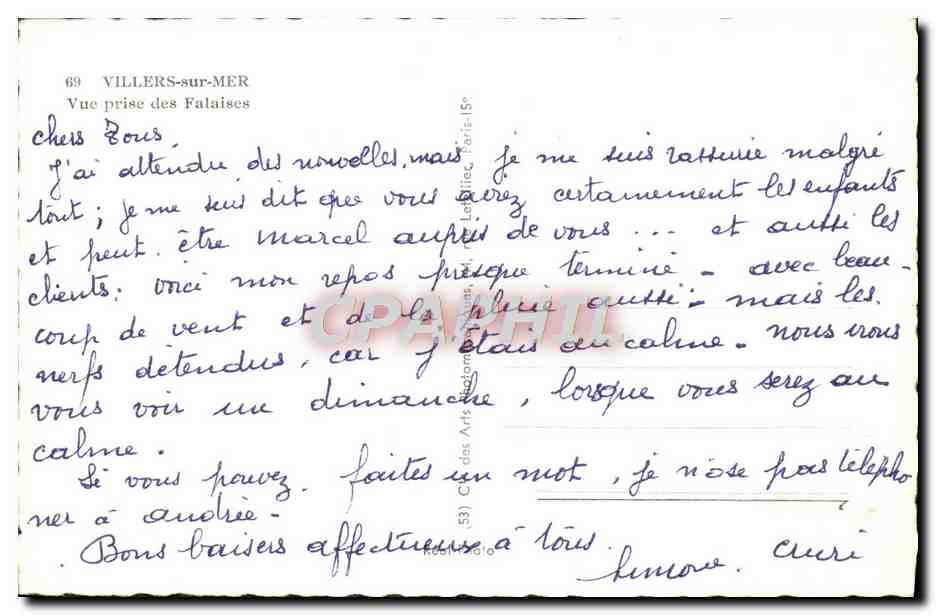 69 VILLERS-sur-MER
Vue prise des Falaises
chers Tous,
J'ai attendu des nouvelles, mais je me suis rassurée malgré
tout ; je me suis dit que vous aviez certainement les enfants
et peut-être Marcel auprès de vous ... et aussi les
clients : voici mon repos presque terminé - avec beau-
coup de vent et de la pluie aussi - mais les
nerfs détendus, car j'étais au calme - nous irons
vous voir un dimanche, lorsque vous serez au
calme.
Si vous pouvez, faites un mot, je n'ose pas télépho
ner à andrée -
Bons baisers affectueux à tous.
Simone.
CPAPHIL
(53) des Arts Photomécaniques, Paris-15e
Real-Photo